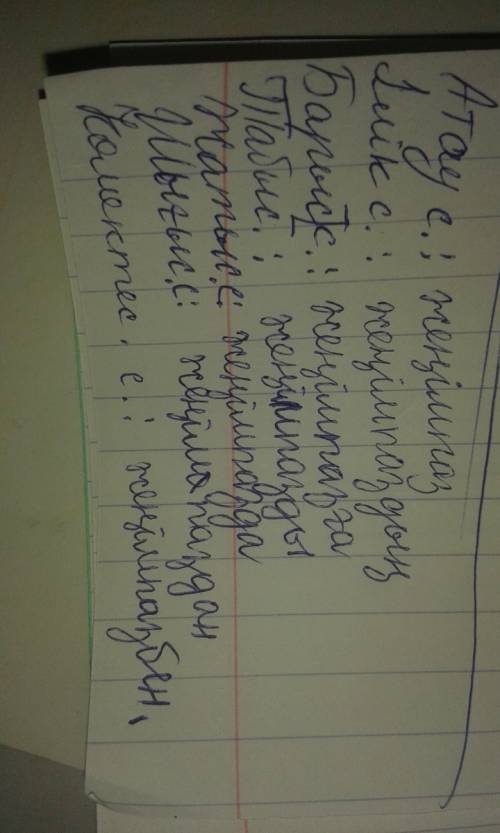 Атау с.: жеңімпаз
Ілік с.: жеңімпаздың
Барыс с.: жеңімпазға
Табыс с.: жеңімпазды
Жатыс с: жеңімпазда
Шығыс с: жеңімпаздан
Көмектес. с.: жеңімпазбен,